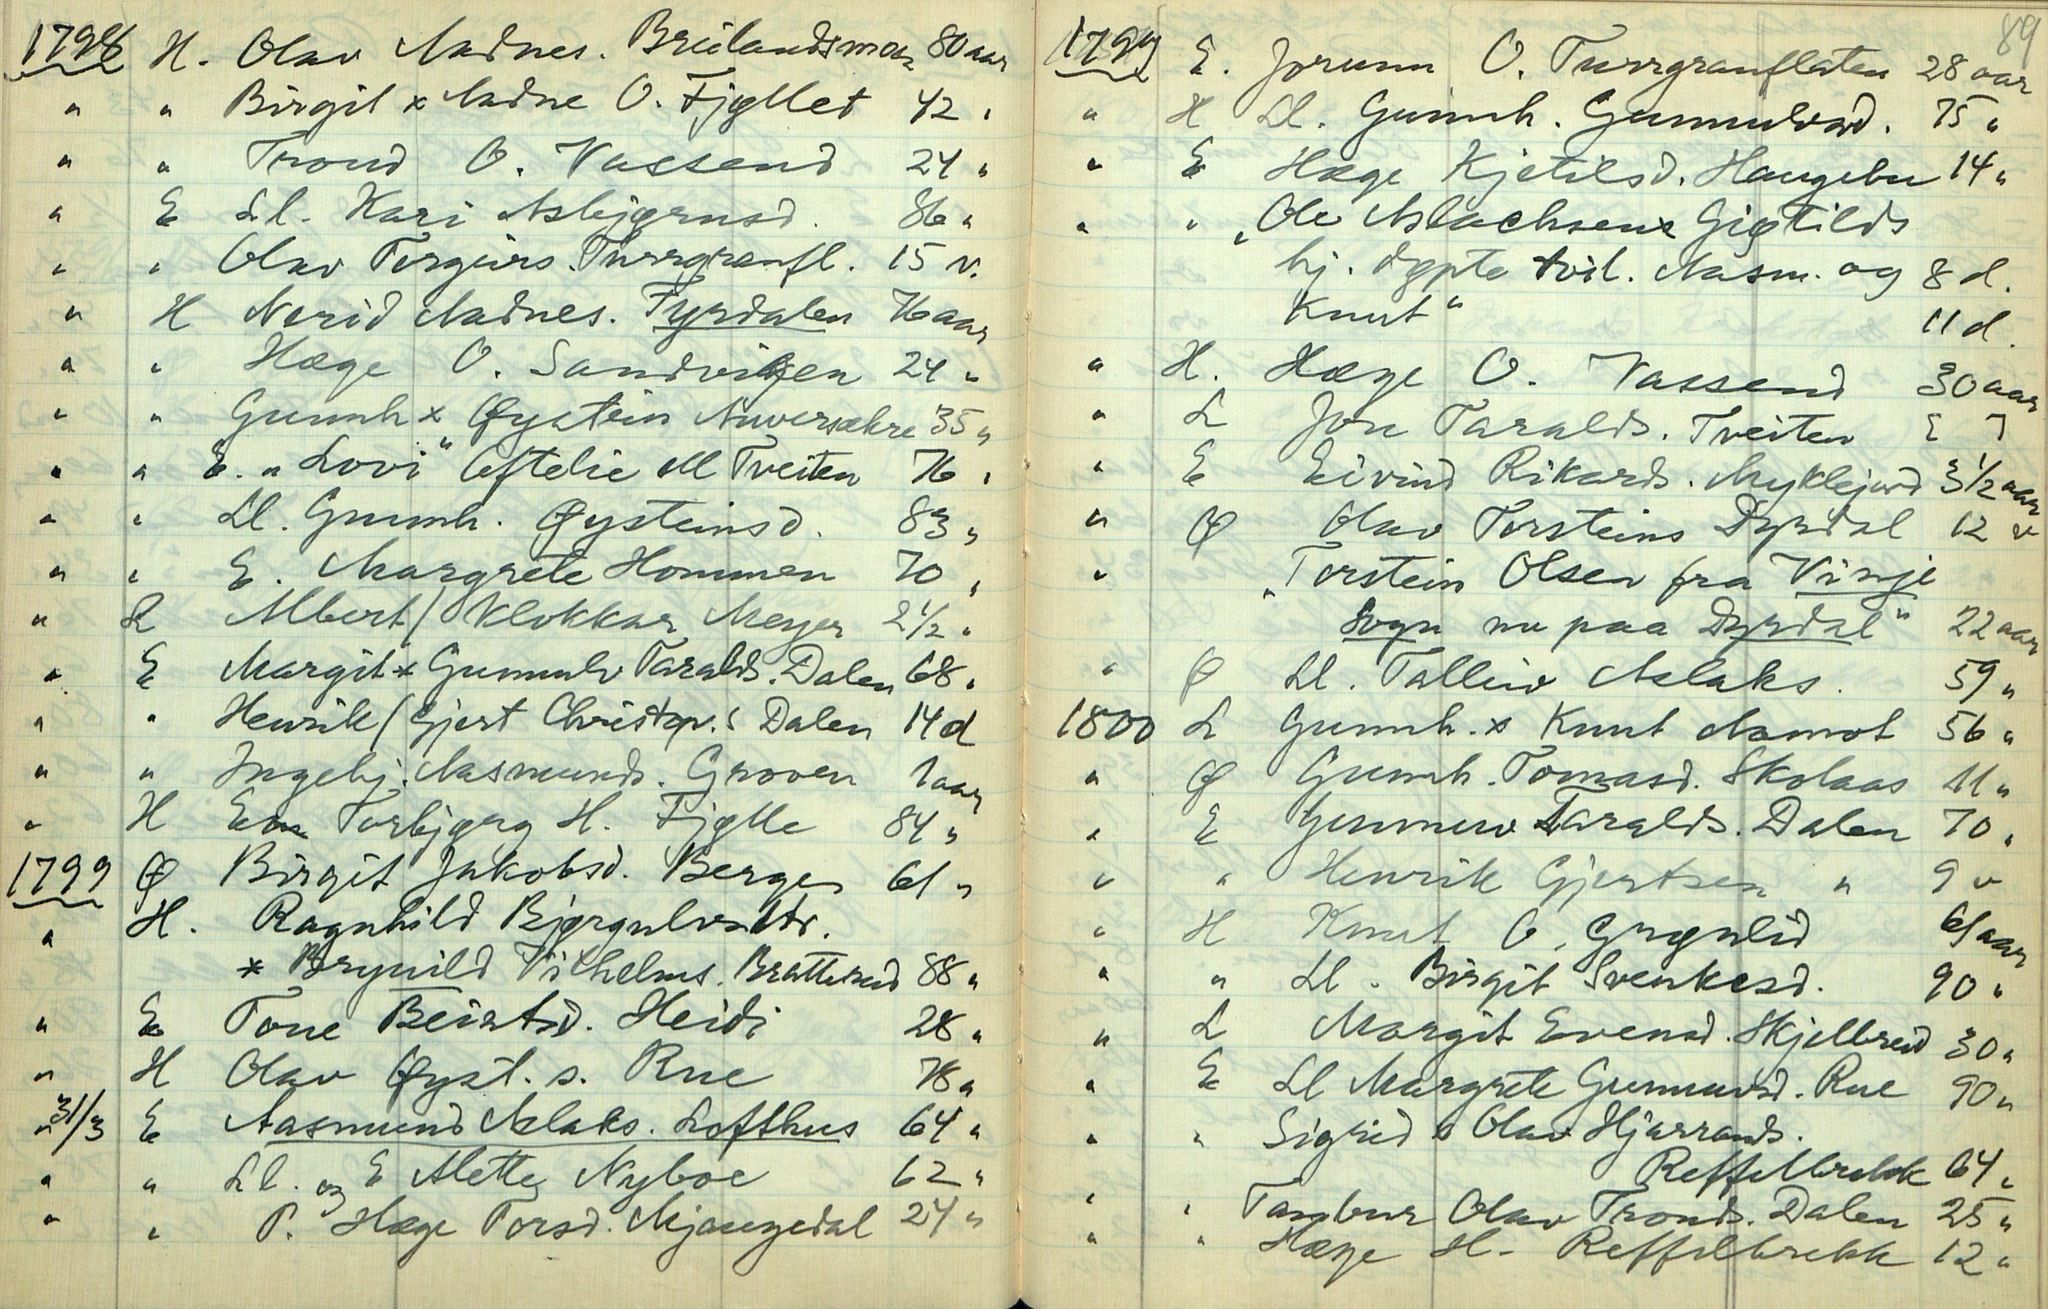 1798 H. Olav Aadnes. Breilandsmoen 80 aar
" " Birgit x Aadne O. Fjøllet 42 "
" " Trond O. Vassend 24 "
" E Ll. Kari Asbjørnsd. 86 "
" " Olav Torgeirs. Turrgranfl. 15 v.
" H Nerid Aadnes. Tyrdalen 76 aar
" " Hæge O. Sandvigen 24 "
" " Gunnh x Øystein Auversækre 35 "
" " E. "Lovi" Oftelie M Tveiten 76 "
" " Ll. Gunnh. Øysteinsd. 83 "
" " E. Margrete Hommen 70 "
" L Albert / Klokkar Meyer 2 1/2 "
" E Margit x Gunnulv Taralds. Dalen 68 "
" " Henrik / Gjert Christop. s Dalen 14 d
" " Ingebj. Aasmunds. Groven 1 aar
" H Em Torbjørg H. Fjølle 84 "
1799 Ø Birgit Jakobsd. Berge 61 "
" H. Ragnhild Bjørgulvsdtr.
x Brynild Vilhelms. Bratterud 88 "
" E Tone Beintsd. Heidi 28 "
" H Olav Øyst. s. Rue 78 "
" 31/3 E Aasmund Aslaks. Lofthus 64 "
" " Ll. og E Alette Nyboe 62 "
" " P. Hæge Torsd. Mjaugedal 24 "
89
1799 E. Jorunn O. Turrgranflaten 28 aar
" H Ll. Gunnh. Gunnulvsd. 75 "
" E Hæge Kjetilsd. Haugebu 14 "
" " "Ole Aslachsens Gigtilds
hj. døpte tvil. Aasm. og 8 d.
Knut" 11 d.
" H. Hæge O. Vassend 30 aar
" L Jon Taralds. Tveiten [ ]
" E Eivind Rikards. Myklejord 3 1/2 aar
" Ø Olav Torsteins Dyrdal 12 v
" "Torstein Olsen fra Vinje
Sogn nu paa Dyrdal" 22 aar
" Ø Ll. Talleiv Aslaks. 59 "
1800 L Gunnh. x Knut Aamot 56 "
" Ø Gunnh. Tomasd. Skolaas 11 "
" E Gunnuv Taralds. Dalen 70 "
" " Henrik Gjertsen " 9 v
" H Knut O. Grønlid 61 aar
" " Ll. Birgit Svenkesd. 90 "
" L Margit Evensd. Skjelbreid 30 "
" E Ll Margrete Gunnuvsd. Rue 90 "
" " Sigrid x Olav Hjarrands.
Reffelbrekk 64 "
" " Tambur Olav Tronds. Dalen 25 "
" " Hæge H. Reffelbrekk 12 "